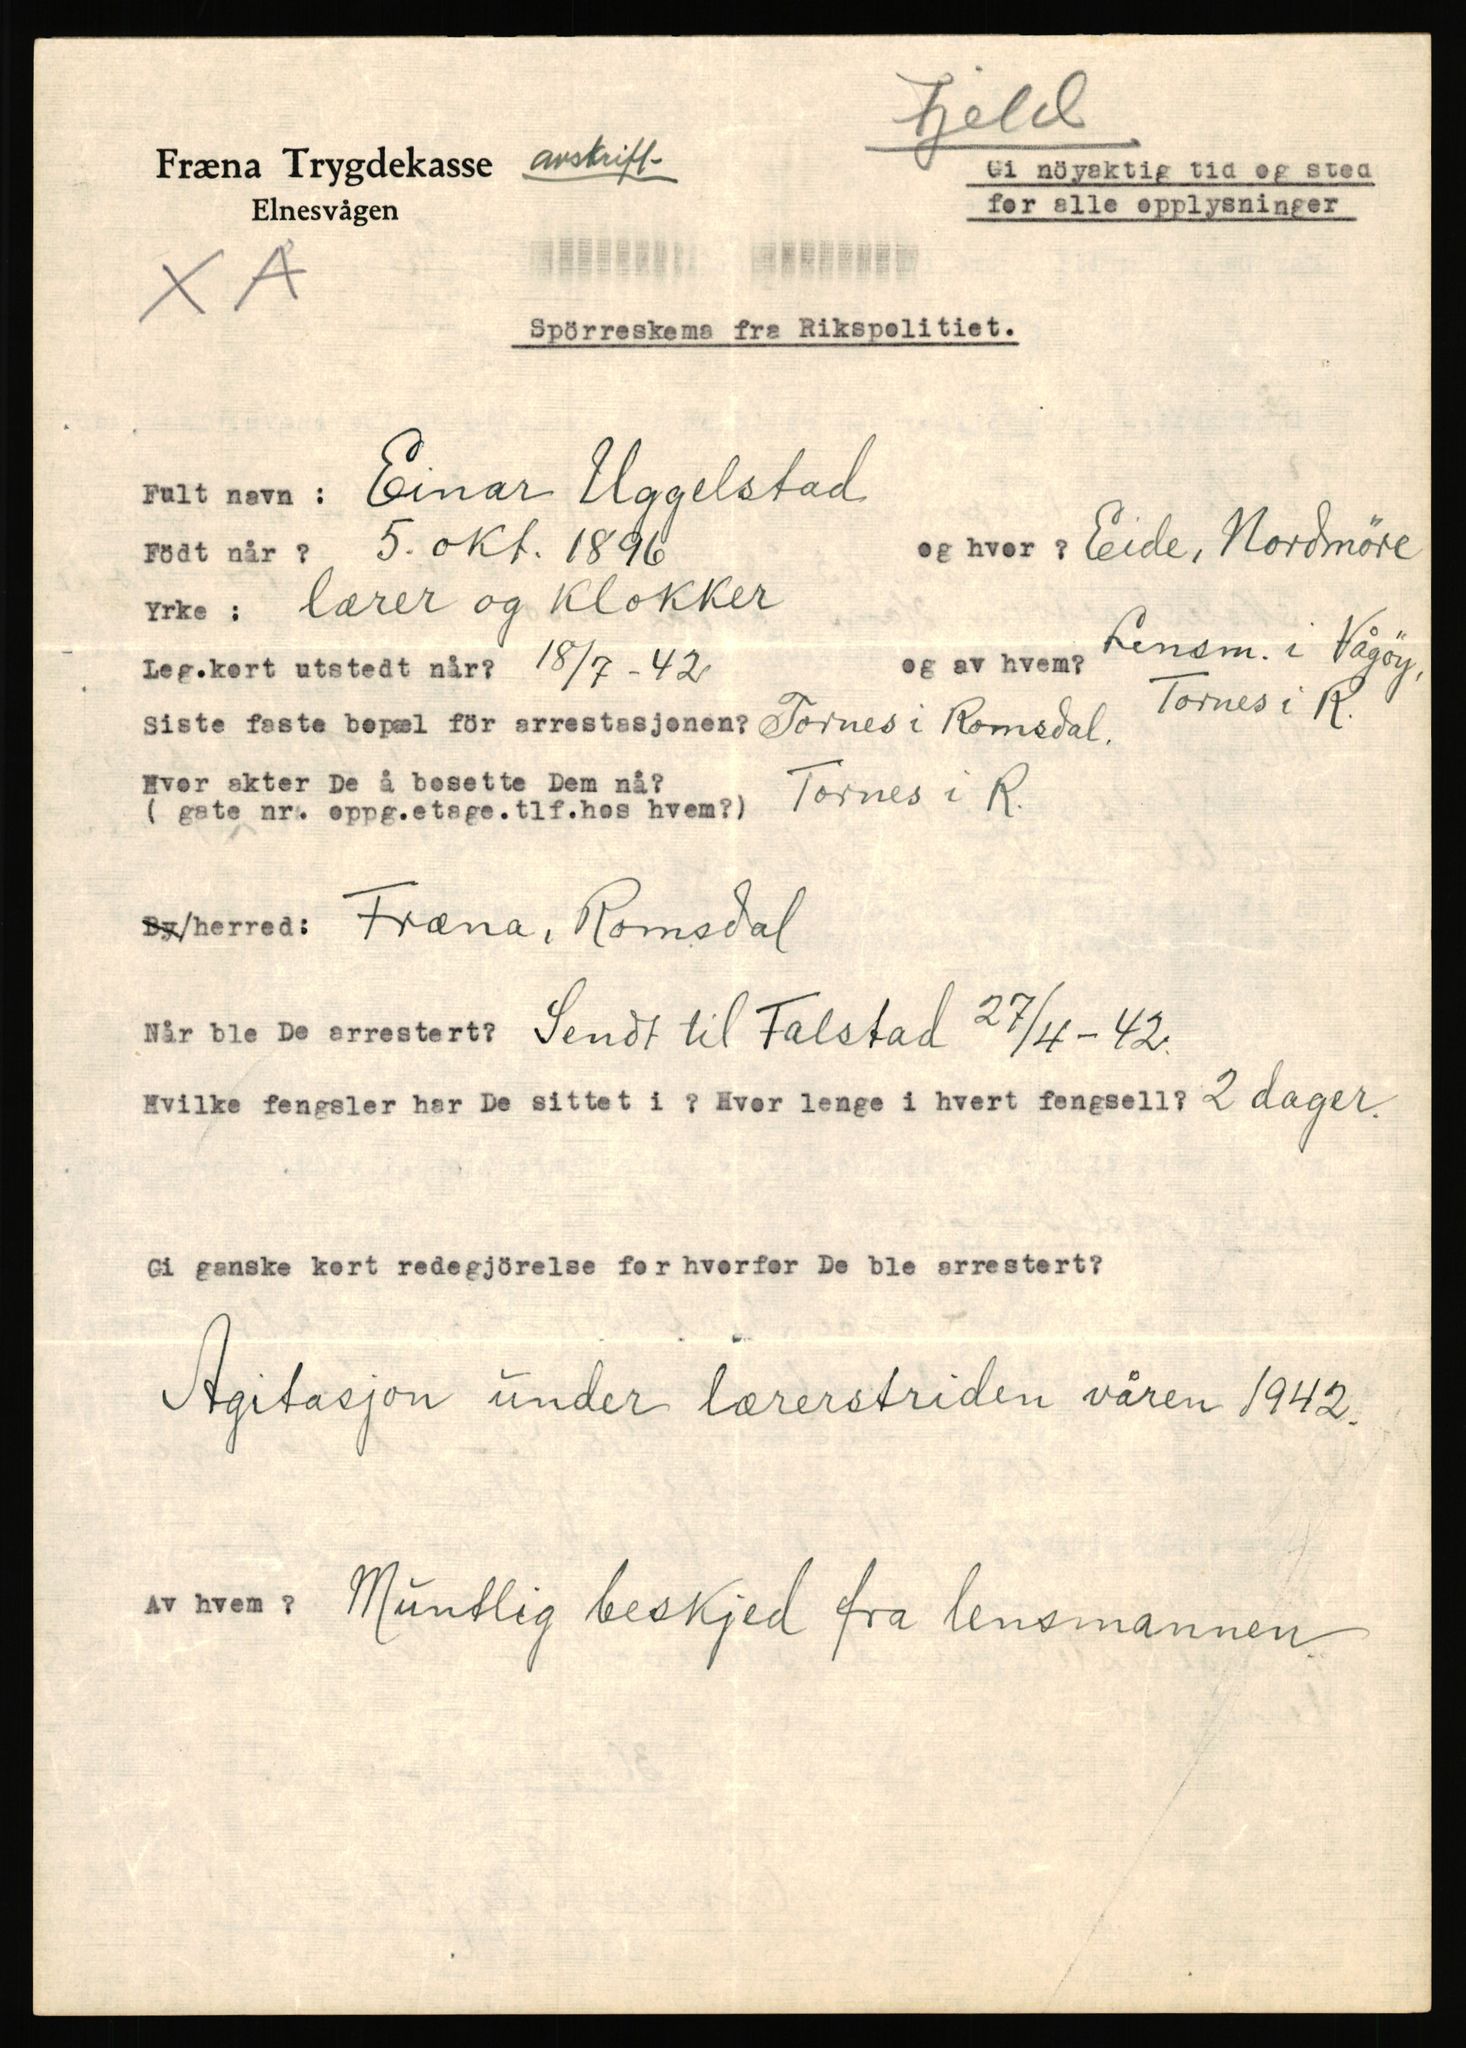 Fjeld
Fræna Trygdekasse avskrift-
Elnesvågen
Gi nöyaktig tid og sted
for alle opplysninger
X Å
Spörreskema fra Rikspolitiet.
Fult navn : Einar Uggelstad
Födt når ? 5. okt. 1896 og hvor ? Eide, Nordmöre
Yrke : lærer og klokker
Leg.kort utstedt når? 18/7 - 42 og av hvem? Lensm. i Vågöy,
Tornes i R.
Siste faste bopæl för arrestasjonen? Tornes i Romsdal.
Hvor akter De å bosette Dem nå? Tornes i R.
( gate nr. oppg.etage.tlf.hos hvem?)
By/herred: Fræna, Romsdal
Når ble De arrestert? Sendt til Falstad 27/4 - 42.
Hvilke fengsler har De sittet i ? Hvor lenge i hvert fengsell? 2 dager.
Gi ganske kort redegjörelse for hvorfor De ble arrestert?
Agitasjon under lærerstriden våren 1942.
Av hvem ? Muntlig beskjed fra lensmannen.